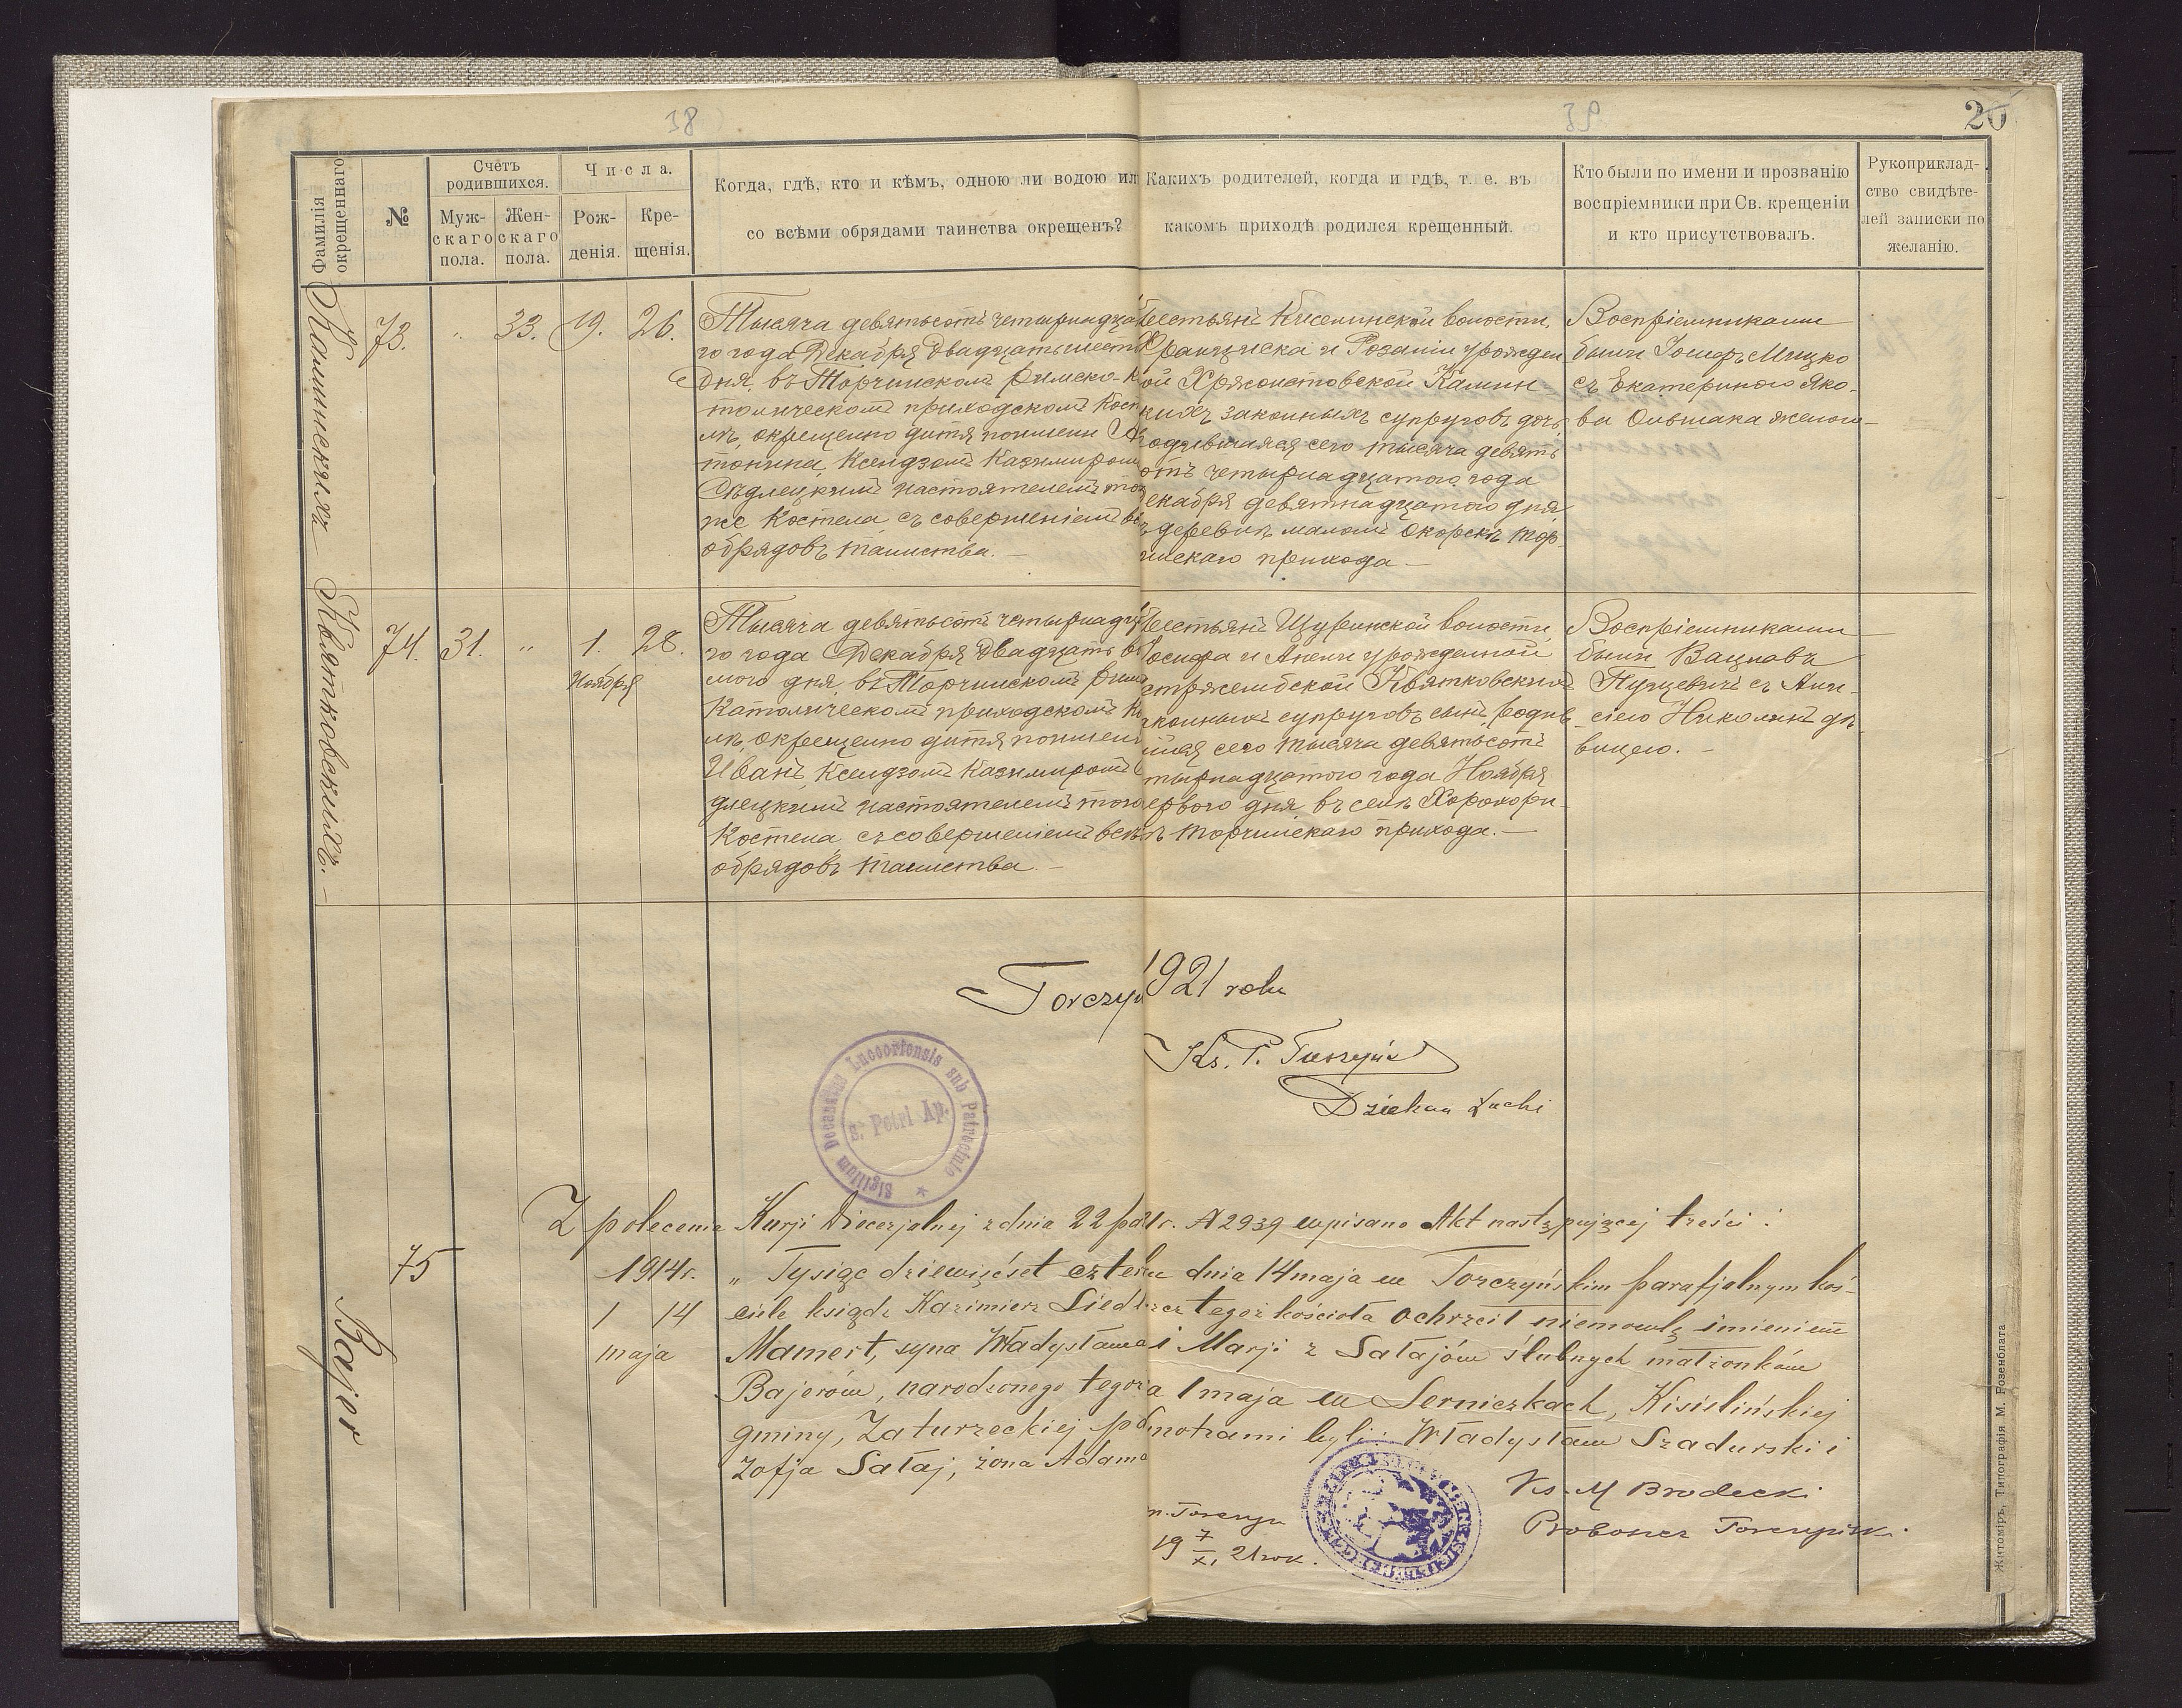 38
39
20
Фамилія окрещеннаго
№
Счетъ родившихся.
Муж-
скаго
пола.
Жен-
скаго
пола.
Числа.
Рож-
денія.
Кре-
щенія.
Когда, гдѣ, кто и кѣмъ, одною ли водою ил
со всѣми обрядами таинства окрещенъ?
Какихъ родителей, когда и гдѣ, т. е. въ
какомъ приходѣ родился крещенный.
Кто были по имени и прозванію
воспріемники при Св. крещеніи
и кто присутствовалъ.
Рукоприклад-
ство свидѣте-
лей записки по
желанію.
Каминскихъ
73.
"
33.
19.
26.
Тысяча девятьсотъ четырнадца
го года Декабря двадцать шест
дня, въ Торчинскомъ римско-к
толическомъ приходскомъ кос
лѣ, окрещено дитя по имени А
тонина, Ксендзомъ Казимиром
Сѣдлецкимъ настоятелемъ то
же Костела, съ совершеніемъ
обрядовъ таинства. —
рестьянъ Киселинской волости,
Франциска и Розаліи урожден
ой Хржонстовской Камин-
кихъ законныхъ супруговъ дочь,
одившаяся сего тысяча девять
отъ четырнадцатого года
екабря девятнадцатого дня
деревнѣ малом Окорскѣ Тор-
чинскаго прихода —
Воспріемниками
были Іосифъ Мицко
съ Екатериною Яко-
ва Ольшака женою —
Квятковскихъ. —
74.
31.
"
1.
28.
Ноября
Тысяча девятьсотъ четырнадц
го года Декабря двадцать в
мого дня, въ Торчинскомъ рим
Католическомъ приходскомъ К
лѣ, окрещено дитя по имени
Иванъ, Ксендзомъ Казимиромъ
длецкимъ настоятелемъ того
Костела съ совершеніемъ всѣх
обрядовъ таинства. —
рестьянъ Щуринской волости,
осифа и Анели урожденной
стржембской Квятковскихъ
аконныхъ супруговъ сынъ, родив
шійся сего тысяча девятьсотъ
тырнадцатого года Ноября
ервого дня, въ селѣ Хорохори-
ѣ Торчинскаго прихода. —
Воспріемниками
были Вацлавъ
Пуцевичъ съ Ани-
сіею Николина дѣ
вицею. —
Torczyn
1921 roku
Ks. P.
Dziekan Łucki
Sigillum Decanatus Luceoriensis sub Patrocinio
S. Petri Ap.
Z polecenia Kurji Diecezjalnej z dnia 22 paź 21 r. N 2939 wpisano Akt następującej treści:
75
1914 r.
1 14
maja
Bajer
„Tysiąc dziewięćset czter ku dnia 14 maja w Torczyńskim parafjalnym koś-
ciele ksiądz Kazimierz Siedl szcz tegoż kościoła ochrzcił niemowlę imieniem
Mamert, syna Władysława i Marji z Satajów ślubnych małżonków
Bajerów, narodzonego tegoż a 1 maja w Serniczkach, Kisielińskiej
gminy, Zaturzeckiej pa motrami byli: Władysław Szadurski i
Zofja Sataj, żona Adama
m. Torczyn
19 7/XI 21 rok.
Ks. M Brodecki
Proboszcz Torczyński.
Житоміръ, Типографія М. Розенблата